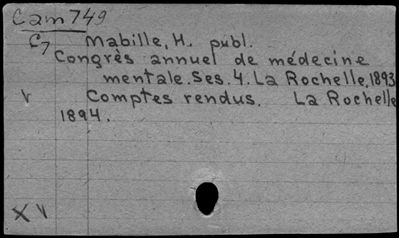 Cam 749
C7 Mabille, H. publ.
Congrès annuel de médecine
mentale. Ses. 4. La Rochelle, 1893
V Comptes rendus. La Rochelle
1894.
X V